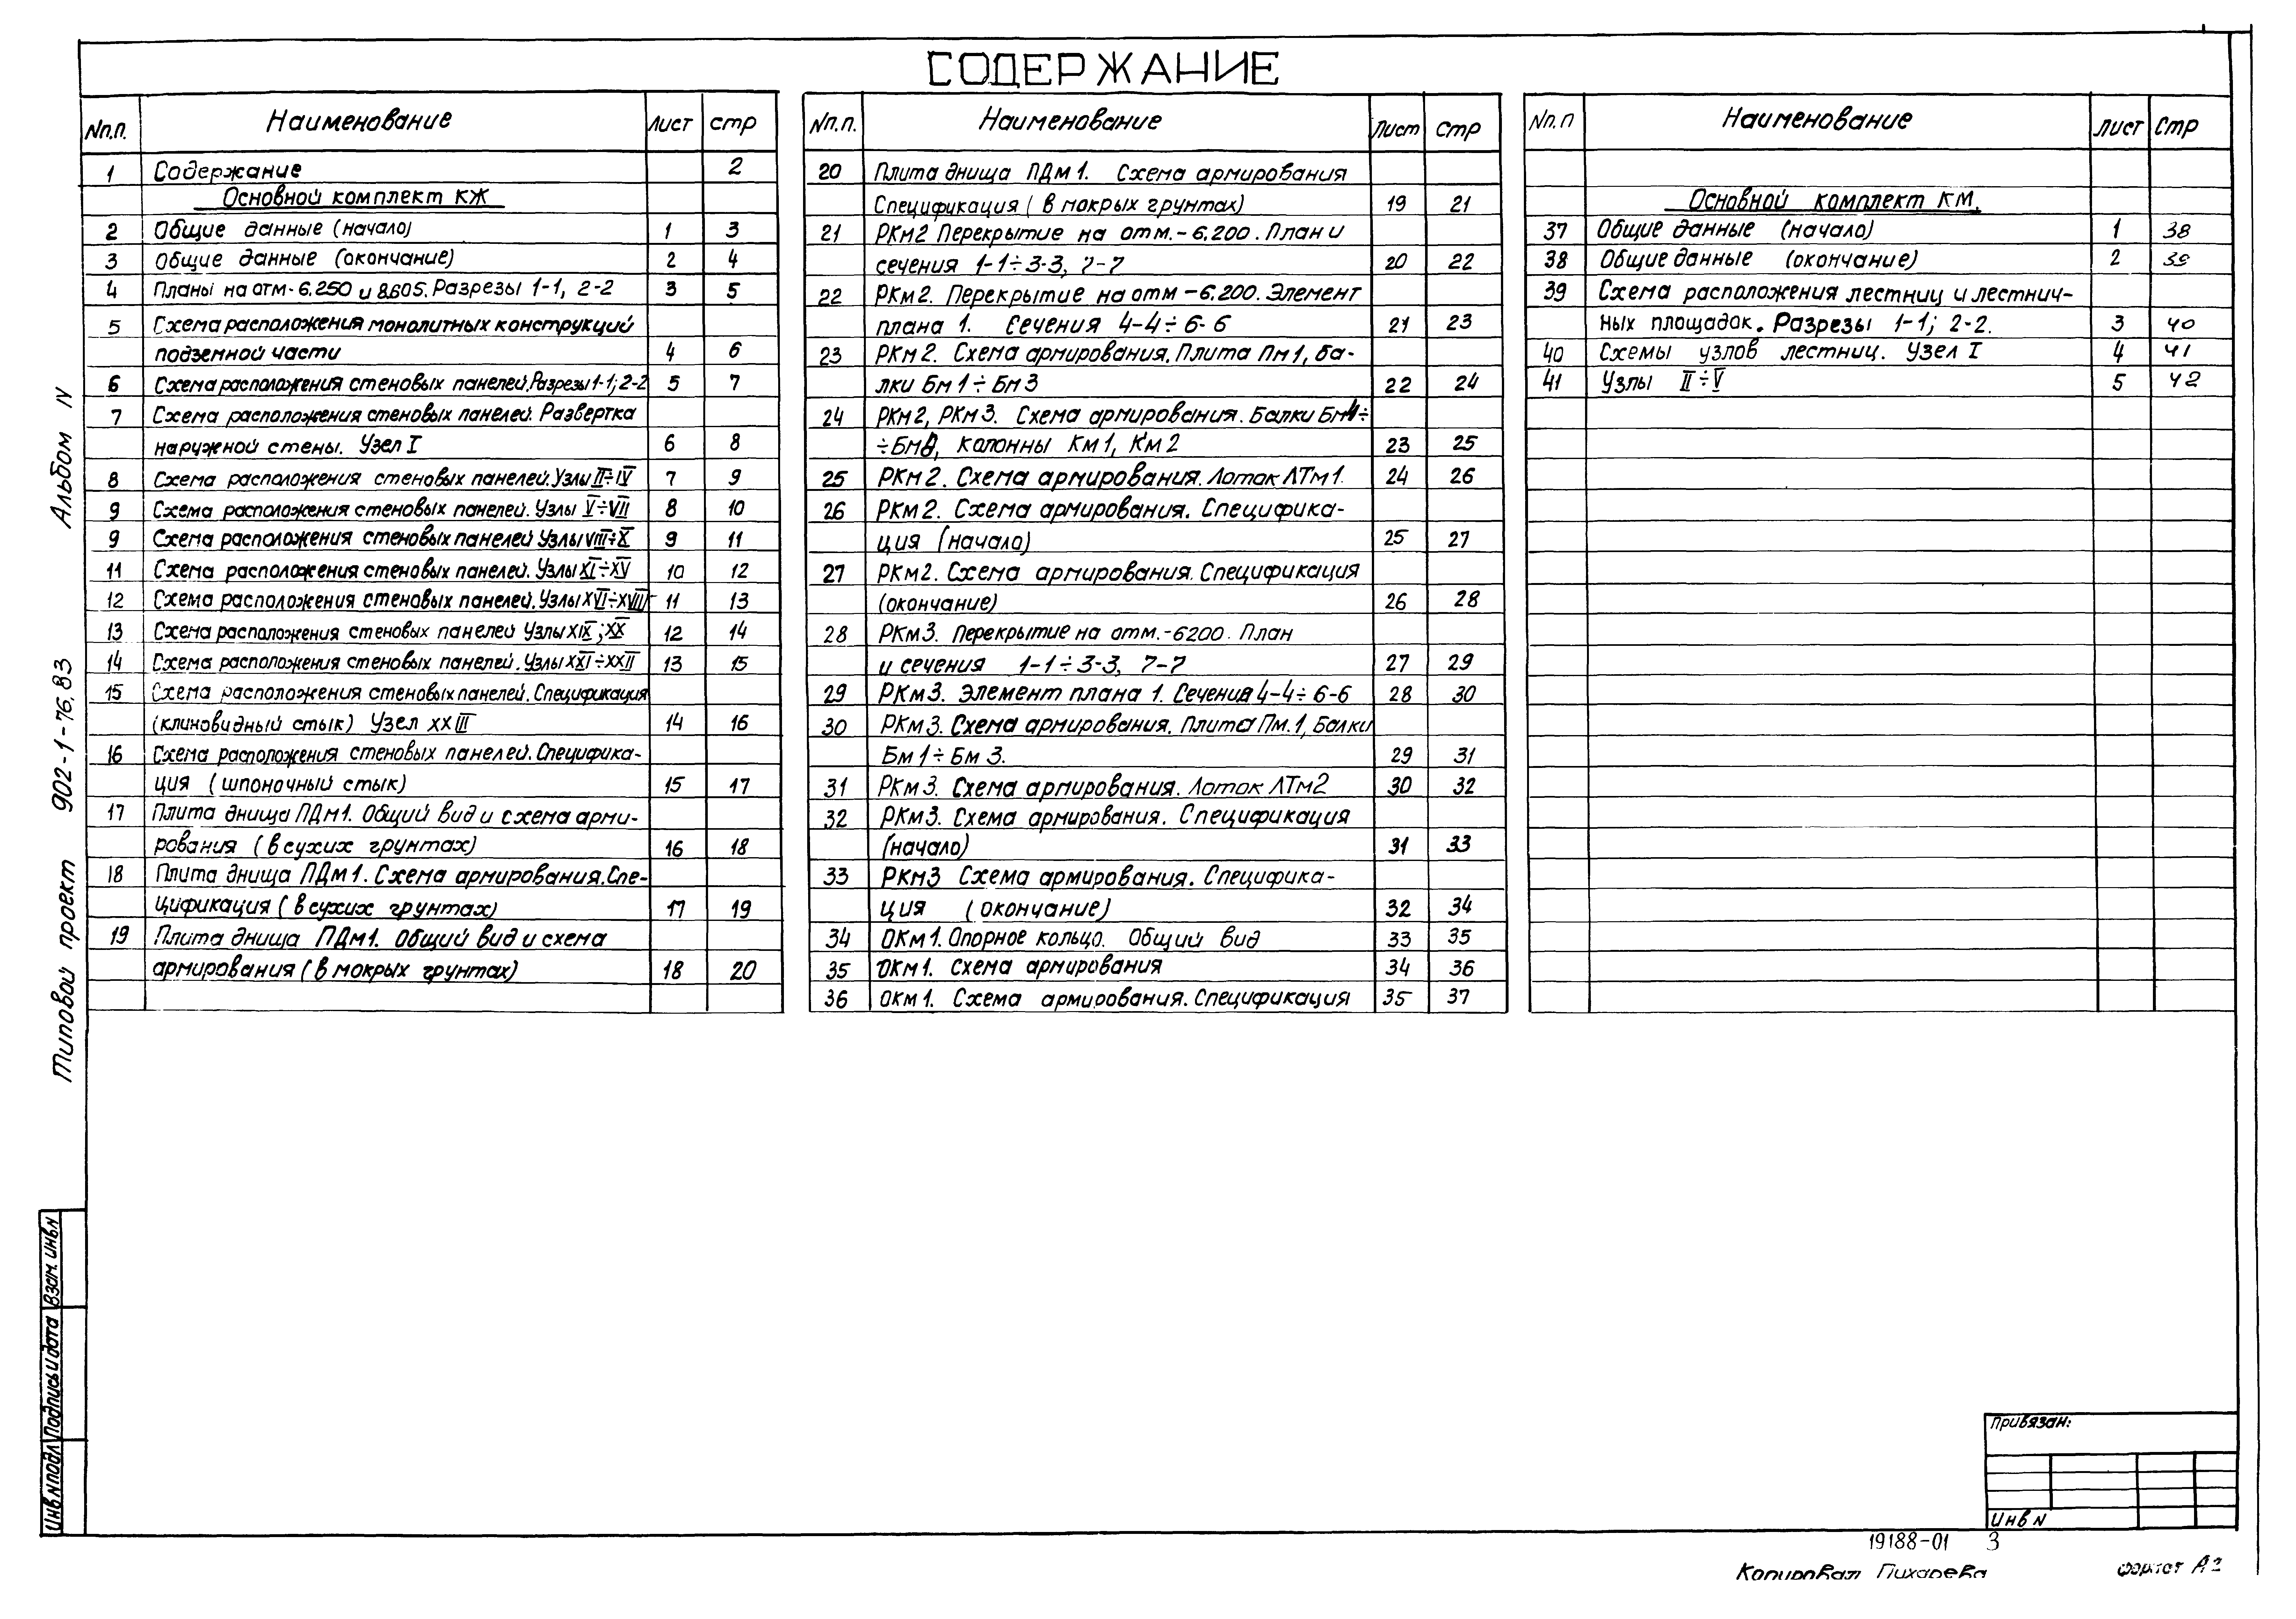 СОДЕРЖАНИЕ
Nп.п. Наименование Лист стр
1 Содержание 2
Основной комплект КЖ
2 Общие данные (начало) 1 3
3 Общие данные (окончание) 2 4
4 Планы на отм-6.250 и 8.605. Разрезы 1-1, 2-2 3 5
5 Схема расположения монолитных конструкций
подземной части 4 6
6 Схема расположения стеновых панелей. Разрезы 1-1; 2-2 5 7
7 Схема расположения стеновых панелей. Развертка
наружной стены. Узел I 6 8
8 Схема расположения стеновых панелей. Узлы II÷IV 7 9
9 Схема расположения стеновых панелей. Узлы V÷VII 8 10
9 Схема расположения стеновых панелей Узлы VIII÷X 9 11
11 Схема расположения стеновых панелей. Узлы XI÷XV 10 12
12 Схема расположения стеновых панелей. Узлы XVI÷XVIII 11 13
13 Схема расположения стеновых панелей Узлы XIX; XX 12 14
14 Схема расположения стеновых панелей. Узлы XXI÷XXII 13 15
15 Схема расположения стеновых панелей. Спецификация
(клиновидный стык) Узел XXIII 14 16
16 Схема расположения стеновых панелей. Специфика-
ция (шпоночный стык) 15 17
17 Плита днища ПДм1. Общий вид и схема арми-
рования (в сухих грунтах) 16 18
18 Плита днища ПДм1. Схема армирования. Спе-
цификация (в сухих грунтах) 17 19
19 Плита днища ПДм1. Общий вид и схема
армирования (в мокрых грунтах) 18 20
Nп.п. Наименование Лист Стр
20 Плита днища ПДм1. Схема армирования
Спецификация (в мокрых грунтах) 19 21
21 РКм2 Перекрытие на отм.-6.200. План и
сечения 1-1÷3-3, 7-7 20 22
22 РКм2. Перекрытие на отм -6.200. Элемент
плана 1. Сечения 4-4÷6-6 21 23
23 РКм2. Схема армирования. Плита Пм1, ба-
лки Бм1÷Бм3 22 24
24 РКм2, РКм3. Схема армирования. Балки Бм4÷
÷Бм8, колонны Км1, Км2 23 25
25 РКм2. Схема армирования. Лоток ЛТм1. 24 26
26 РКм2. Схема армирования. Специфика-
ция (начало) 25 27
27 РКм2. Схема армирования. Спецификация
(окончание) 26 28
28 РКм3. Перекрытие на отм.-6200. План
и сечения 1-1÷3-3, 7-7 27 29
29 РКм3. Элемент плана 1. Сечения 4-4÷6-6 28 30
30 РКм3. Схема армирования. Плита Пм.1, Балки
Бм1÷Бм3. 29 31
31 РКм3. Схема армирования. Лоток ЛТм2 30 32
32 РКм3. Схема армирования. Спецификация
(начало) 31 33
33 РКм3 Схема армирования. Специфика-
ция (окончание) 32 34
34 ОКм1. Опорное кольцо. Общий вид 33 35
35 ОКм1. Схема армирования 34 36
36 ОКм1. Схема армирования. Спецификация 35 37
Nп.п Наименование Лист Стр
Основной комплект КМ.
37 Общие данные (начало) 1 38
38 Общие данные (окончание) 2 39
39 Схема расположения лестниц и лестнич-
ных площадок. Разрезы 1-1; 2-2. 3 40
40 Схемы узлов лестниц. Узел I 4 41
41 Узлы II÷V 5 42
Типовой проект 902-1-76.83 Альбом IV
Инв N подл Подпись и дата Взам. инв N
Привязан:
Инв N
19188-01 3
Копировал Пихарева формат А2